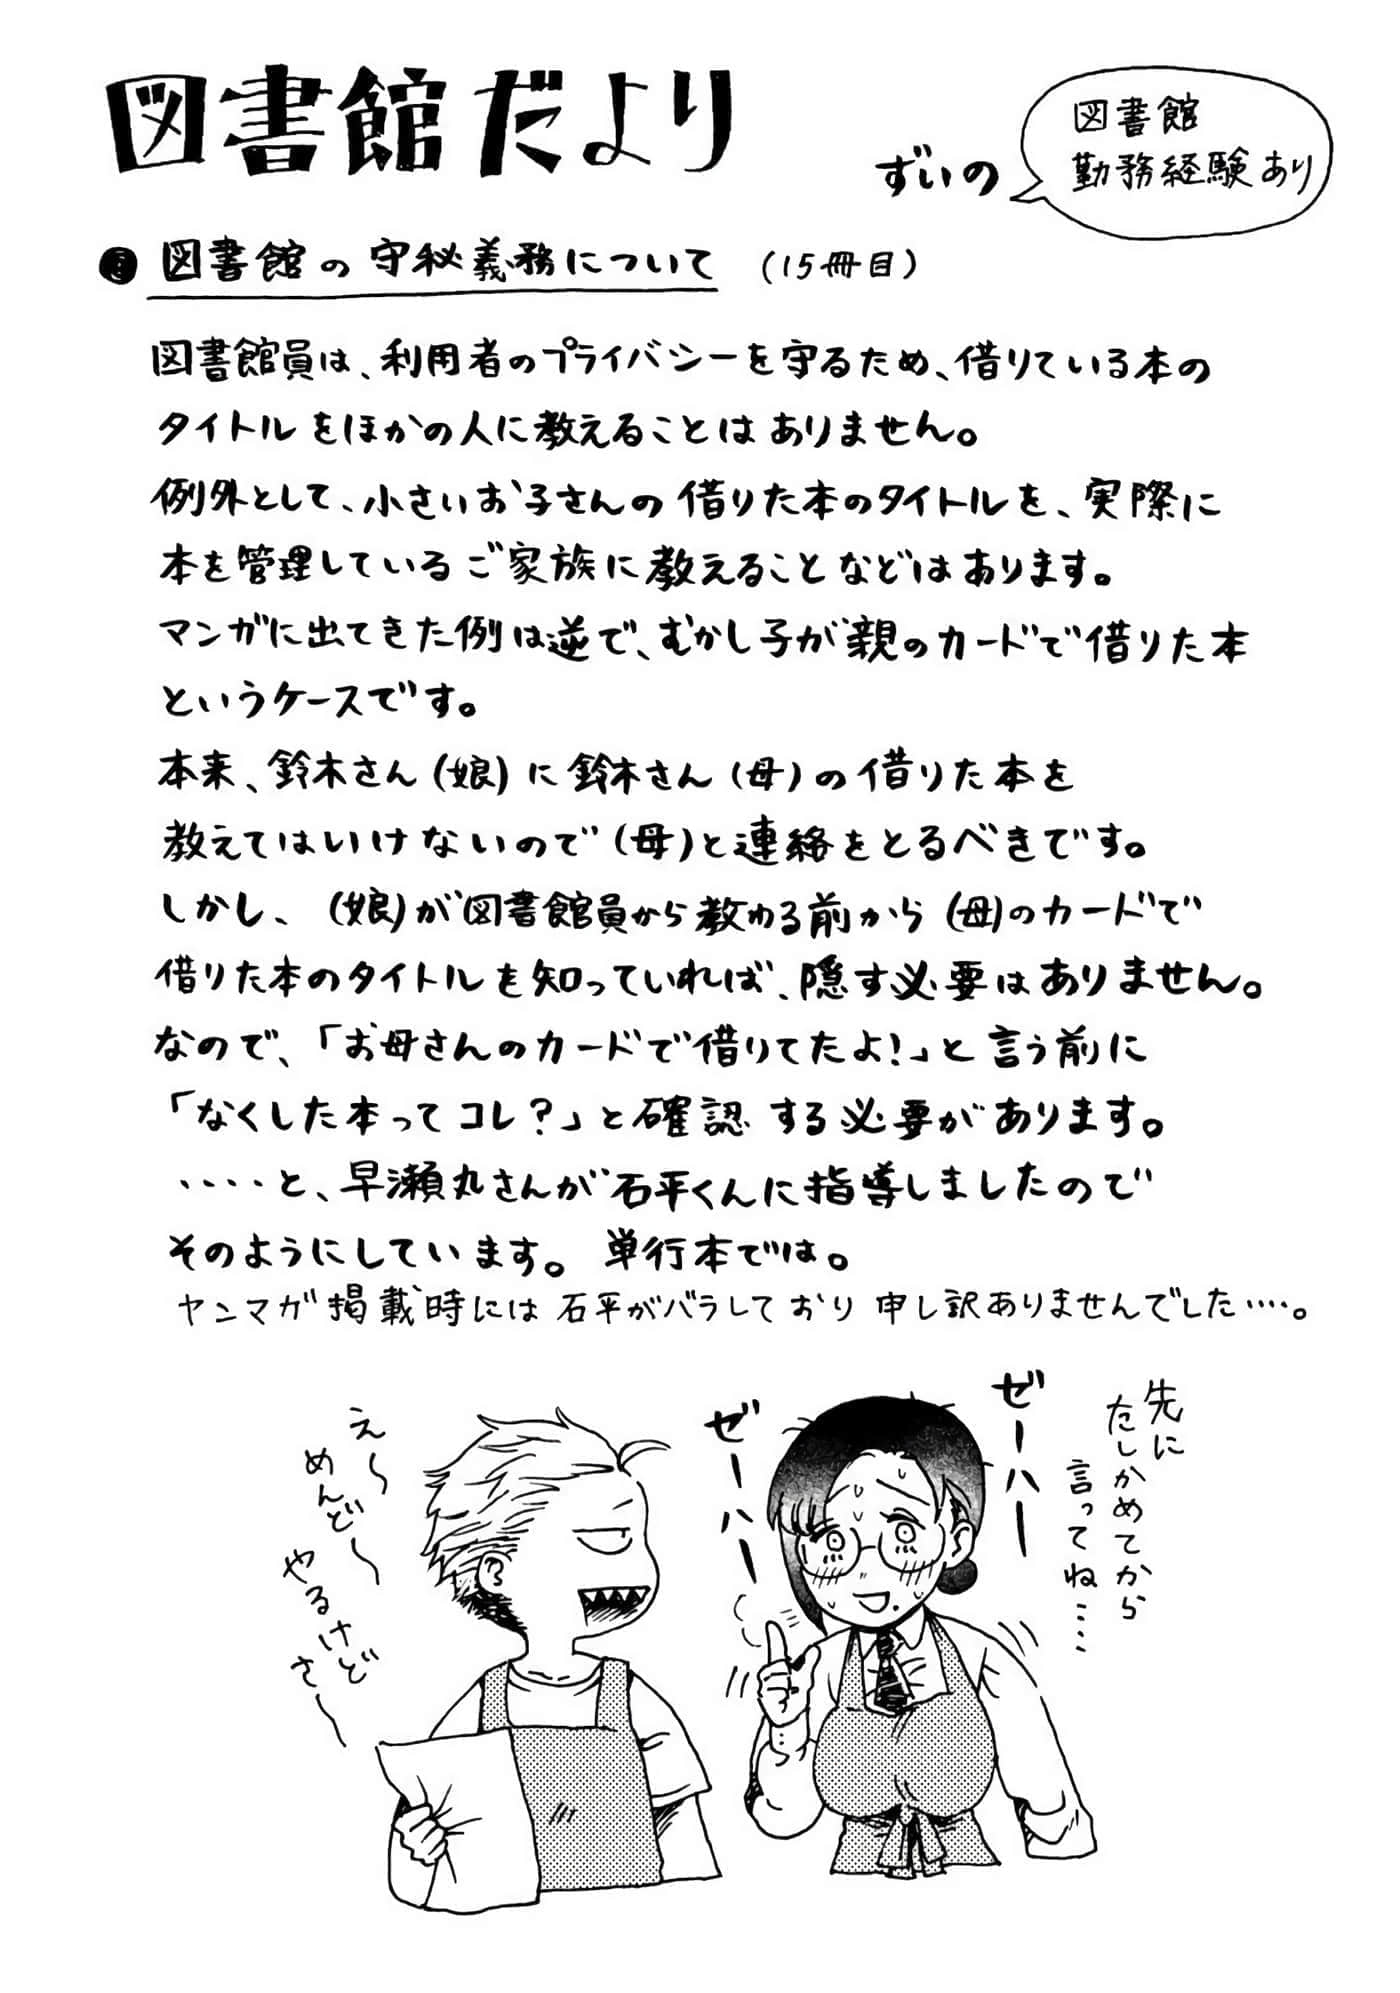 図書館だより
ずいの
図書館
勤務経験あり
図書館の守秘義務について (15冊目)
図書館員は、利用者のプライバシーを守るため、借りている本の
タイトルをほかの人に教えることはありません。
例外として、小さいお子さんの借りた本のタイトルを、実際に
本を管理しているご家族に教えることなどはあります。
マンガに出てきた例は逆で、むかし子が親のカードで借りた本
というケースです。
本来、鈴木さん(娘)に鈴木さん(母)の借りた本を
教えてはいけないので(母)と連絡をとるべきです。
しかし、(娘)が図書館員から教わる前から(母)のカードで
借りた本のタイトルを知っていれば、隠す必要はありません。
なので、「お母さんのカードで借りてたよ!」と言う前に
「なくした本ってコレ?」と確認する必要があります。
‥‥と、早瀬丸さんが石平くんに指導しましたので
そのようにしています。単行本では。
ヤンマガ掲載時には石平がバラしており申し訳ありませんでした‥‥。
先に
たしかめてから
言ってね‥‥
ゼーハー
ゼーハー
え〜
めんど〜
やるけど
さ〜